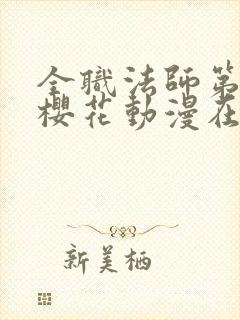 全職法師第
櫻花動漫在
新美栖